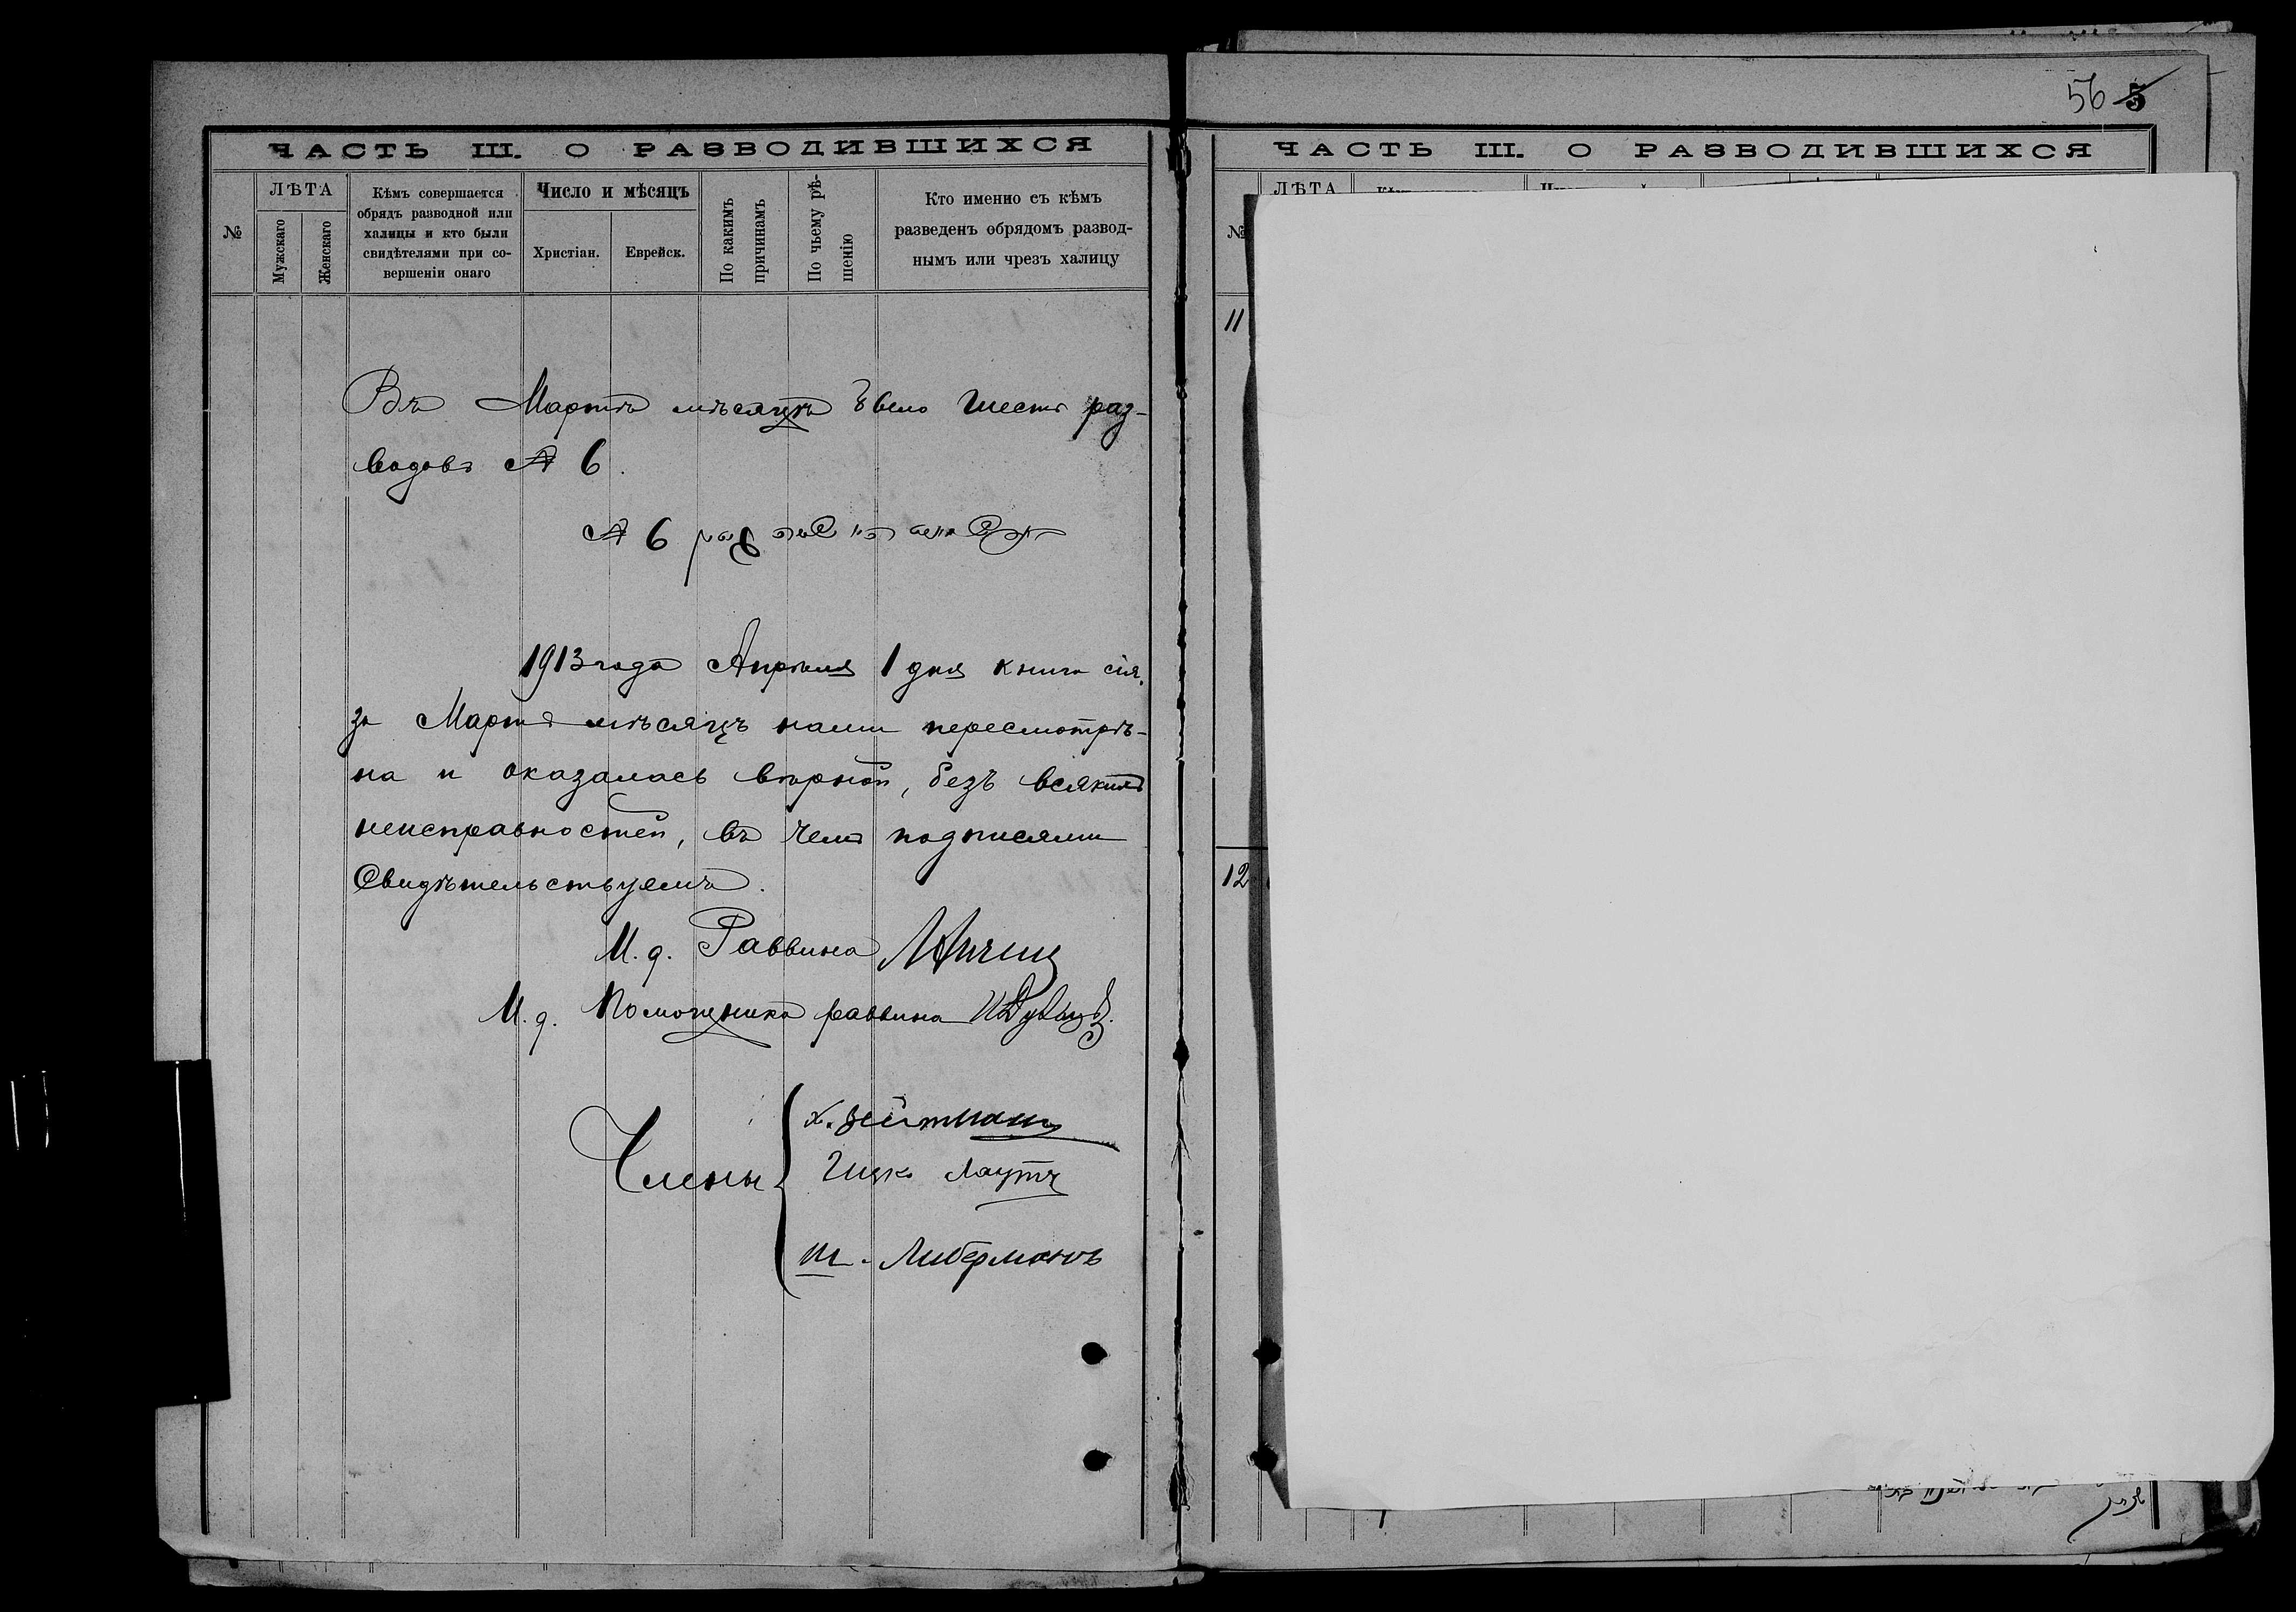 ЧАСТЬ III. О РАЗВОДИВШИХСЯ
№
ЛѢТА
Мужскаго
Женскаго
Кѣмъ совершается
обрядъ разводной или
халицы и кто были
свидѣтелями при со-
вершеніи онаго
Число и мѣсяцъ
Христіан.
Еврейск.
По какимъ
причинамъ
По чьему рѣ-
шенію
Кто именно съ кѣмъ
разведенъ обрядомъ развод-
нымъ или чрезъ халицу
Въ Мартѣ мѣсяцѣ было шесть раз-
водовъ № 6.
№ 6
1913 года Апрѣля 1 дня книга сія
за Мартъ мѣсяцъ нами пересмотрѣ-
на и оказалась вѣрной, безъ всякихъ
неисправностей, въ чемъ подписями
Свидѣтельствуемъ.
И. д. Раввина
И. д. Помощника раввина
Члены
Х. Зейтманъ
Ицко Лаутъ
Ш. Либерманъ
56 5
ЧАСТЬ III. О РАЗВОДИВШИХСЯ
№
ЛѢТА
11
12